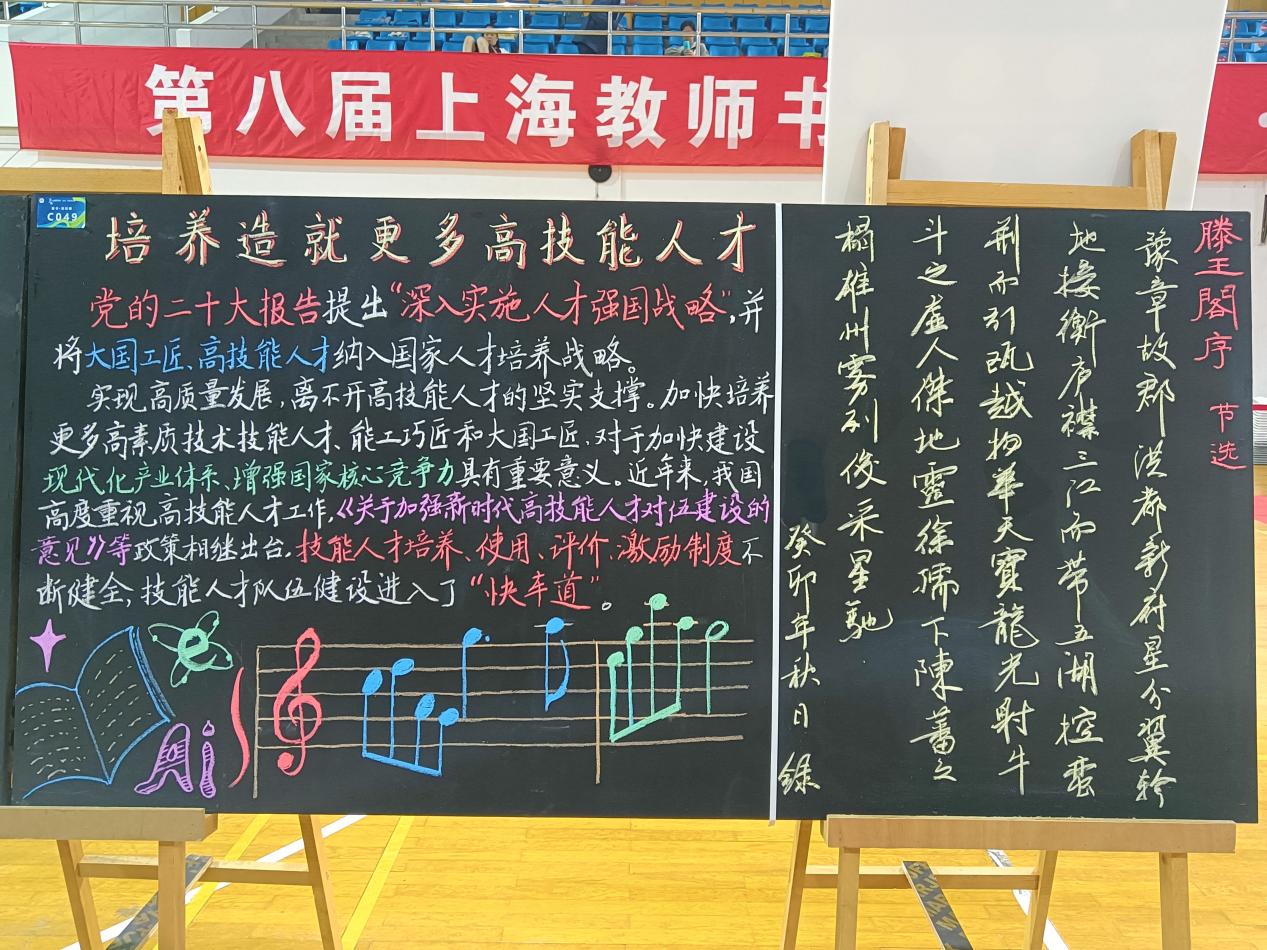 第八届上海教师书
C049
培养造就更多高技能人才
党的二十大报告提出“深入实施人才强国战略”,并
将大国工匠、高技能人才纳入国家人才培养战略。
实现高质量发展,离不开高技能人才的坚实支撑。加快培养
更多高素质技术技能人才、能工巧匠和大国工匠,对于加快建设
现代化产业体系、增强国家核心竞争力具有重要意义。近年来,我国
高度重视高技能人才工作,《关于加强新时代高技能人才对伍建设的
意见》等政策相继出台,技能人才培养、使用、评价、激励制度不
断健全,技能人才队伍健设进入了“快车道”。
Ai
滕王閣序 节选
豫章故郡洪都新府星分翼軫
地接衡庐襟三江而带五湖控蛮
荆而引瓯越物華天寶龍光射牛
斗之虚人傑地靈徐孺下陳蕃之
榻雄州雾列俊采星馳
癸卯年秋日録